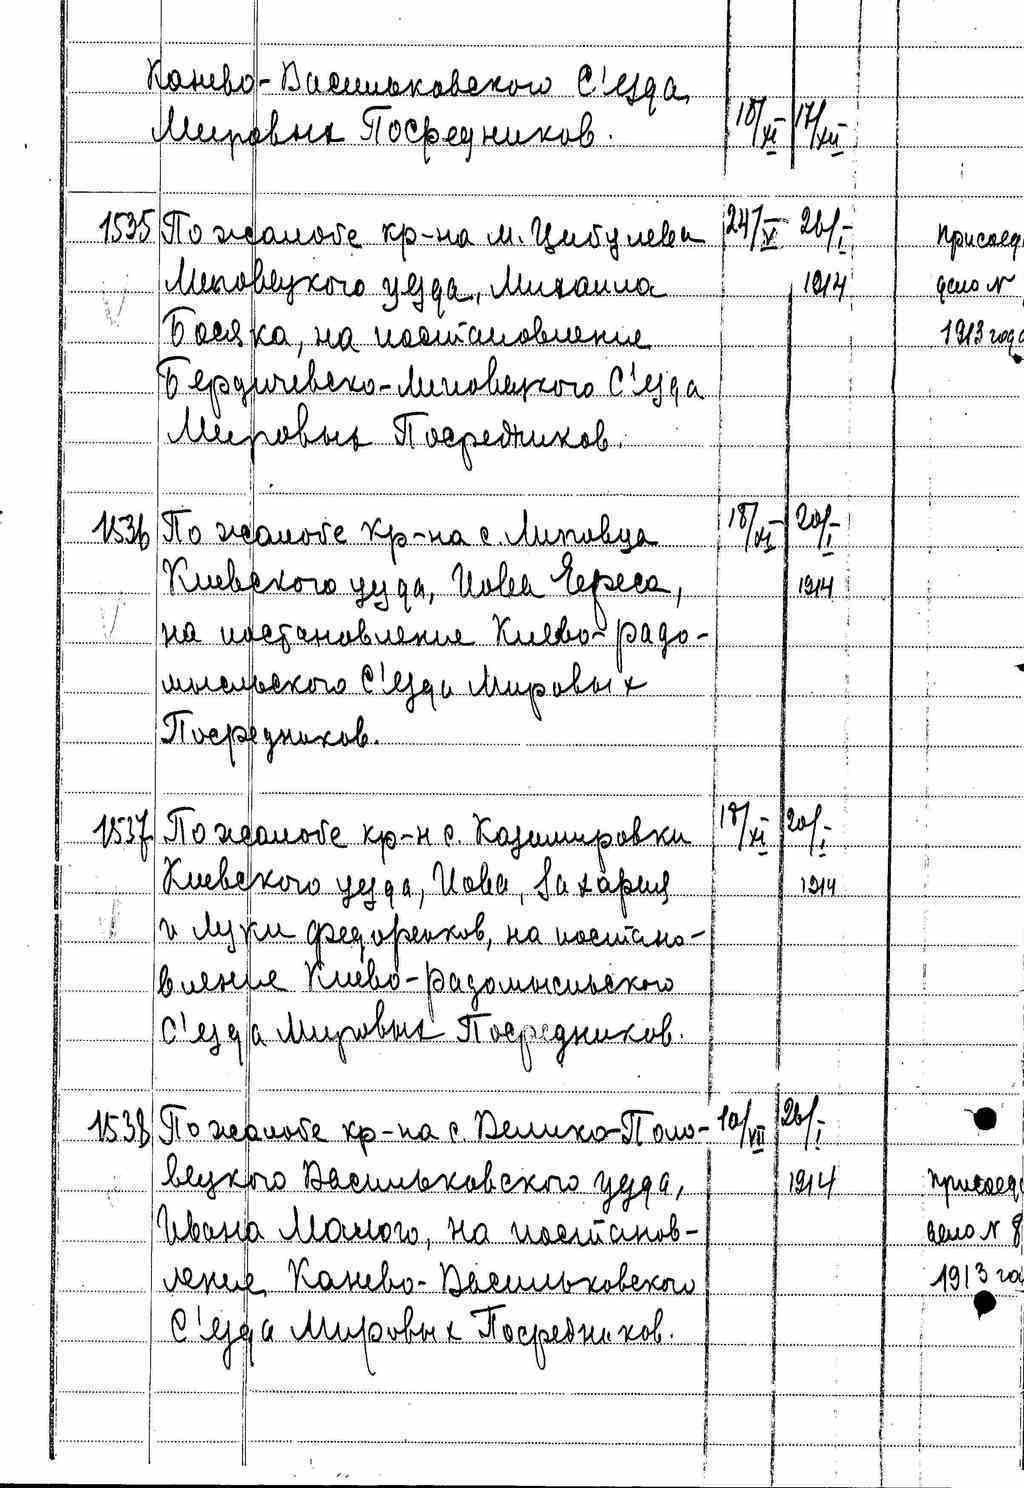 Канево-Васильковского С'езда
Мировых Посредников. 18/XI 17/XII
1535 По жалобе кр-на м. Цибулева 24/V 26/I присоед
Липовецкого уезда, Михаила 1914 дело N
Босяка, на постановление 1913 года
Бердичевско-Липовецкого С'езда
Мировых Посредников.
1536 По жалобе кр-на с. Липовца 18/XI 20/I
Киевского уезда, Иова Береса, 1914
на постановление Киево-радо-
мысльского С'езда Мировых
Посредников.
1537 По жалобе кр-н с. Казимировки 18/XI 20/I
Киевского уезда, Иова, Захария 1914
и Луки Федоренков, на постано-
вление Киево-радомысльского
С'езда Мировых Посредников.
1538 По жалобе кр-на с. Велико-Поло- 10/VII 26/I
вецкого Васильковского уезда, 1914 присоед
Ивана Малого, на постанов- дело N 8
ление Канево-Васильковского 1913 го
С'езда Мировых Посредников.